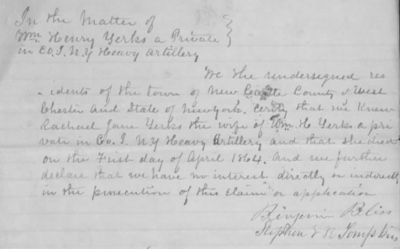 In the Matter of
Wm Henry Yerks a Private
in Co. I. N.Y Heavy Artillery
We the undersigned res
idents of the town of New Castle County of West
Chester And State of Newyork. Certify that we Knew
Rachael Jane Yerks the wife of Wm H Yerks a pri
vate in Co. I. N.Y Heavy Artillery and that she died
on the First day of April 1864. And we further
declare that we have no interest directly or indirectly
in the prosecution of this claim or application
Benjamin Bliss
Stephen Tompkins